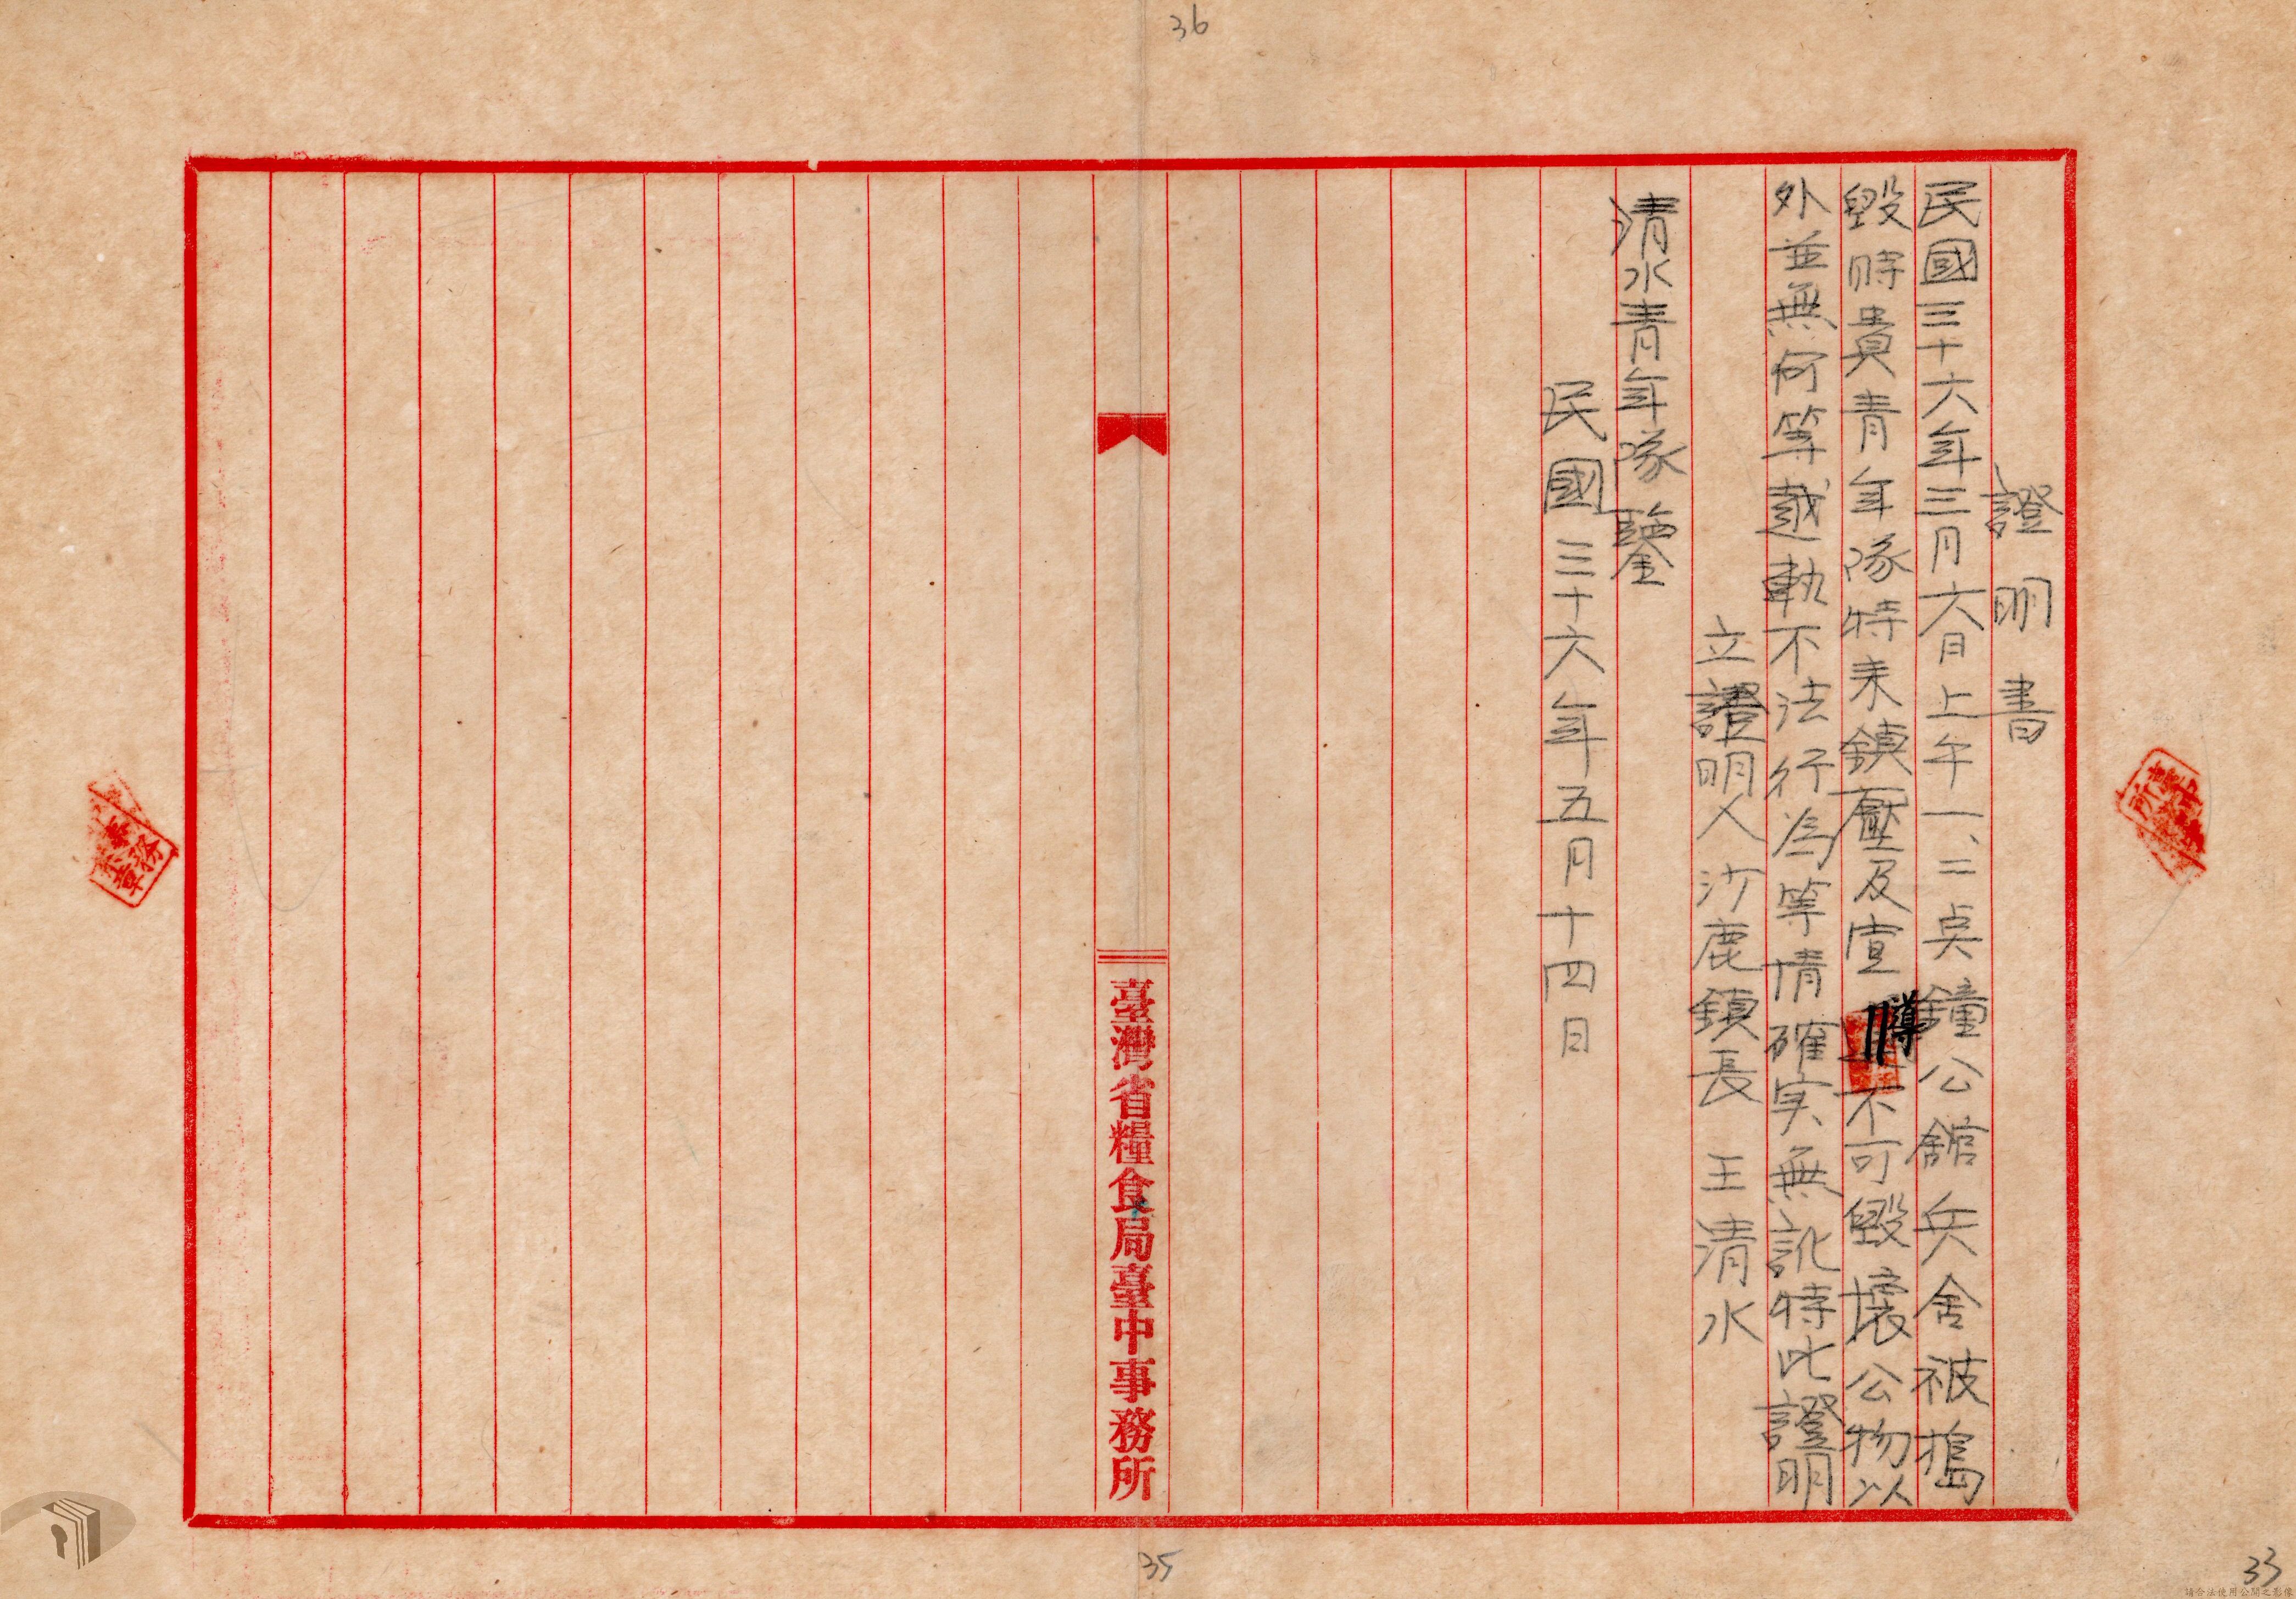 36
證明書
民國三十六年三月六日上午一、二点鐘公舘兵舍被搗
毀時貴青年隊特来鎮壓及宣導不可毀壞公物以
外並無何等越軌不法行為等情確实無訛特此證明
立證明人沙鹿鎮長 王清水
清水青年隊鑒
民國三十六年五月十四日
臺灣省糧食局臺中事務所
35
33
請合法使用公開之影像